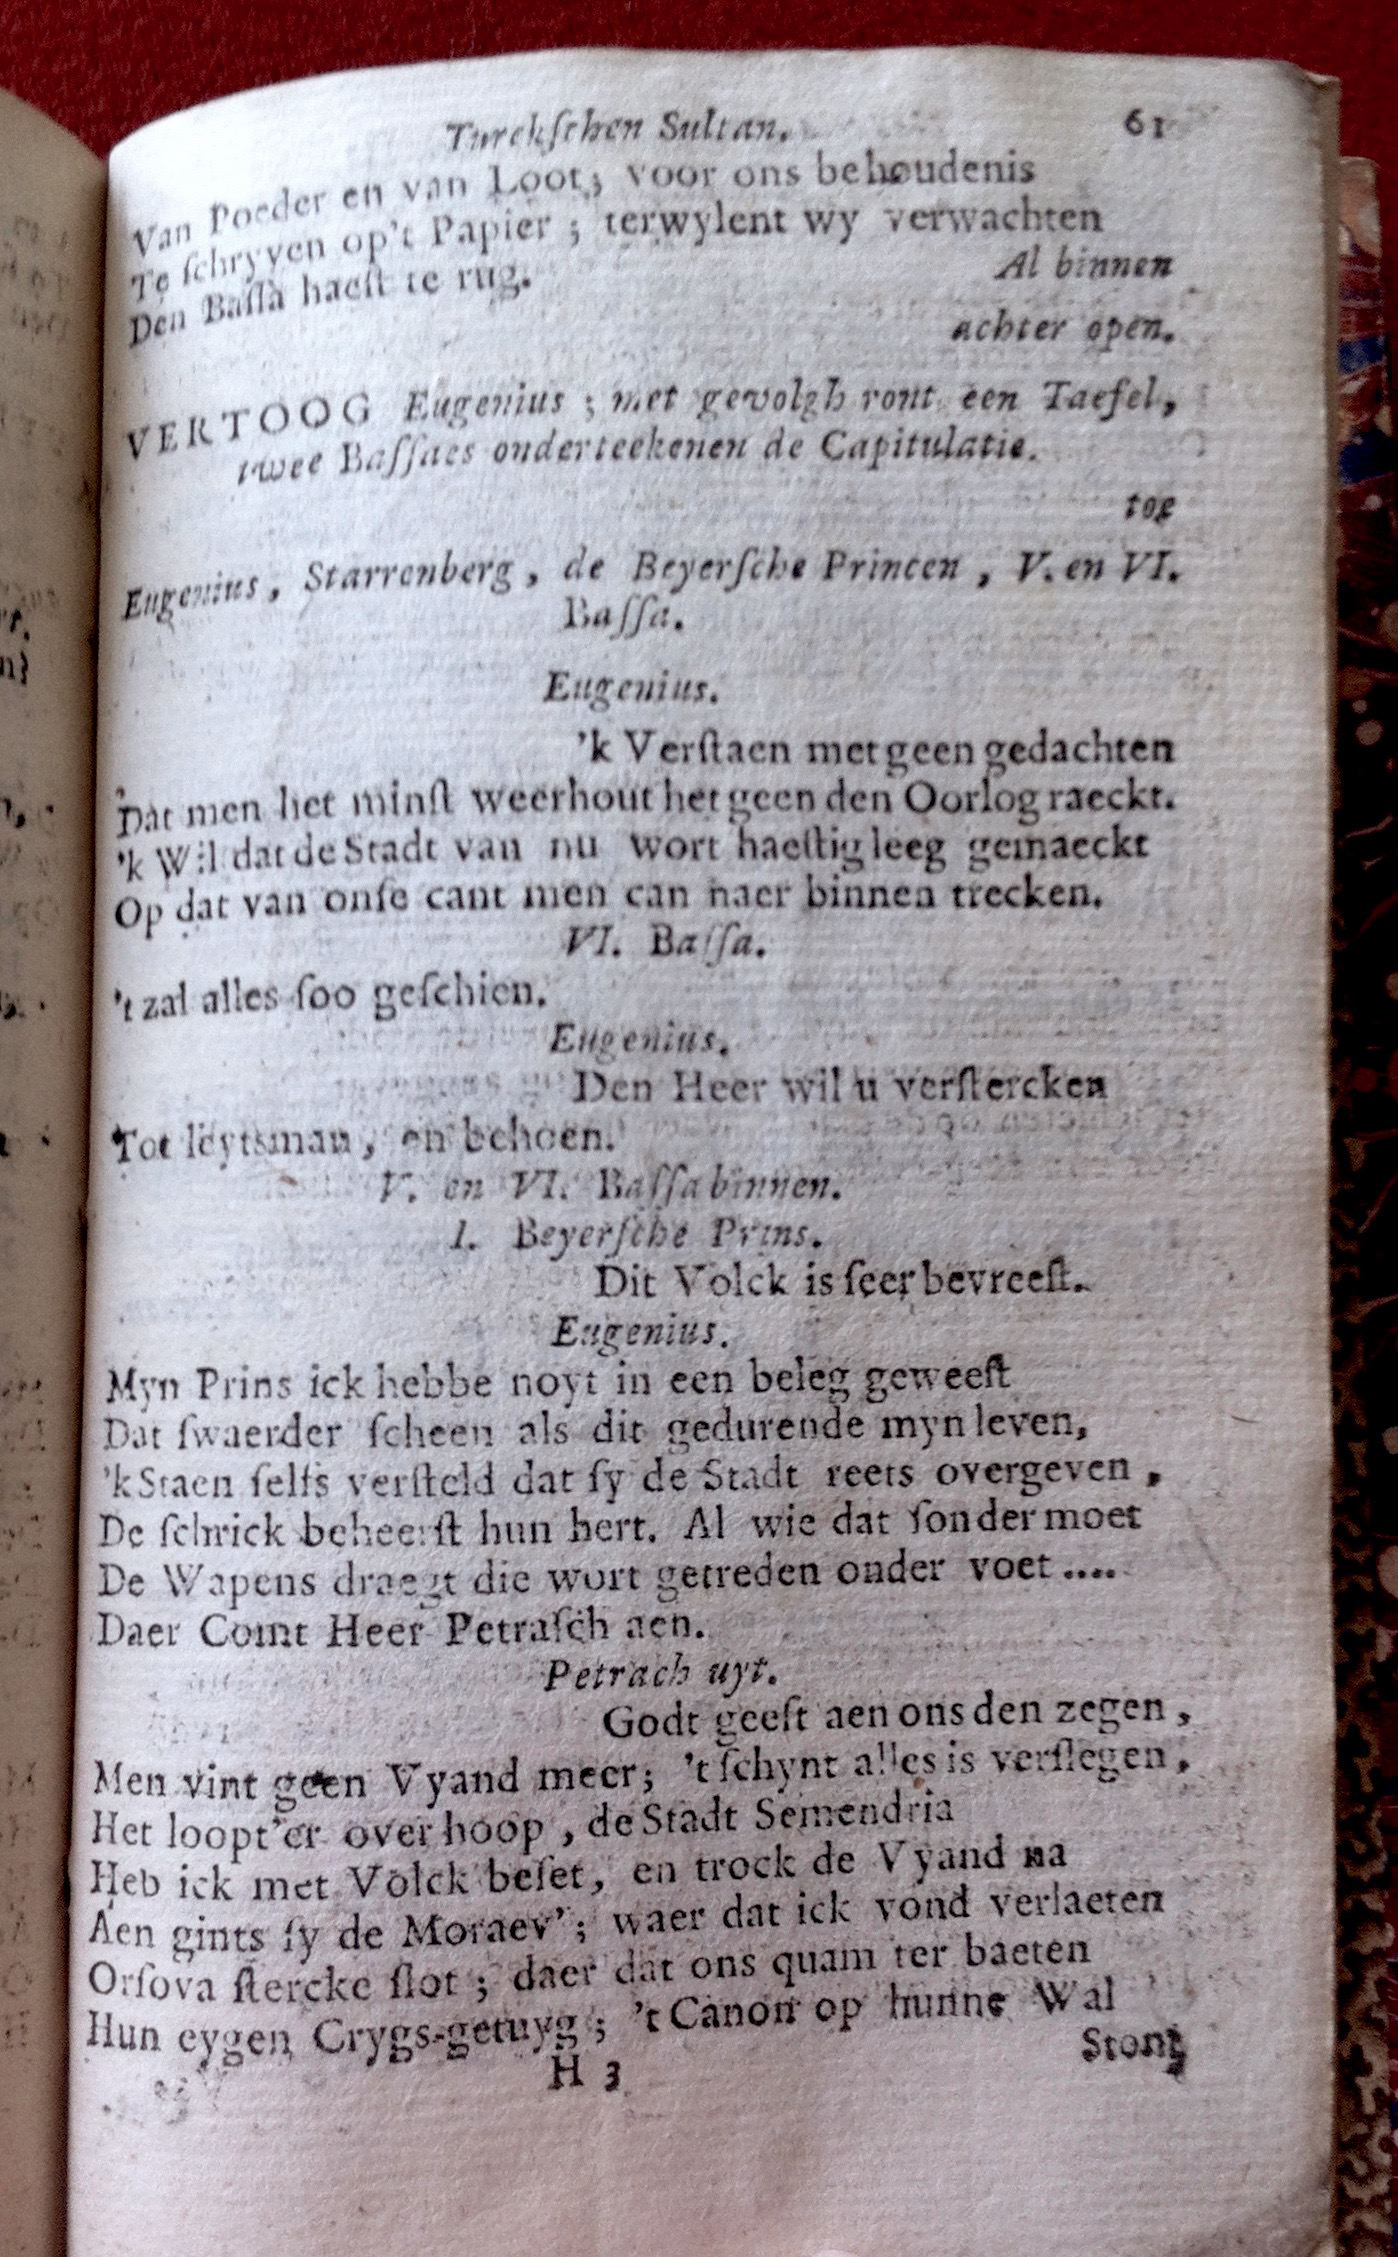 Turckſchen Sultan. 61
Van Poeder en van Loot; voor ons behoudenis
Te ſchryven op't Papier ; terwylent wy verwachten
Den Baſſa haeſt te rug.
Al binnen
achter open.
VERTOOG Eugenius ; met gevolgh ront een Taefel,
twee Baſſaes onderteekenen de Capitulatie.
toe
Eugenius, Starrenberg, de Beyerſche Princen, V. en VI.
Baſſa.
Eugenius.
'k Verſtaen met geen gedachten
Dat men het minſt weerhout het geen den Oorlog raeckt.
'k Wil dat de Stadt van nu wort haeſtig leeg gemaeckt
Op dat van onſe cant men can naer binnen trecken.
VI. Baſſa.
't zal alles ſoo geſchien.
Eugenius.
Den Heer wil u verſtercken
Tot leytsman, en behoen.
V. en VI. Baſſa binnen.
I. Beyerſche Prins.
Dit Volck is ſeer bevreeſt.
Eugenius.
Myn Prins ick hebbe noyt in een beleg geweeſt
Dat ſwaerder ſcheen als dit gedurende myn leven,
'k Staen ſelfs verſteld dat ſy de Stadt reets overgeven,
De ſchrick beheerſt hun hert. Al wie dat ſonder moet
De Wapens draegt die wort getreden onder voet ....
Daer Comt Heer Petraſch aen.
Petrach uyt.
Godt geeft aen ons den zegen,
Men vint geen Vyand meer; 't ſchynt alles is verſlegen,
Het loopt'er over hoop, de Stadt Semendria
Heb ick met Volck beſet, en trock de Vyand na
Aen gints ſy de Moraev'; waer dat ick vond verlaeten
Orſova ſtercke ſlot ; daer dat ons quam ter baeten
Hun eygen Crygs-getuyg ; 't Canon op hunne Wal
H 3 Stont